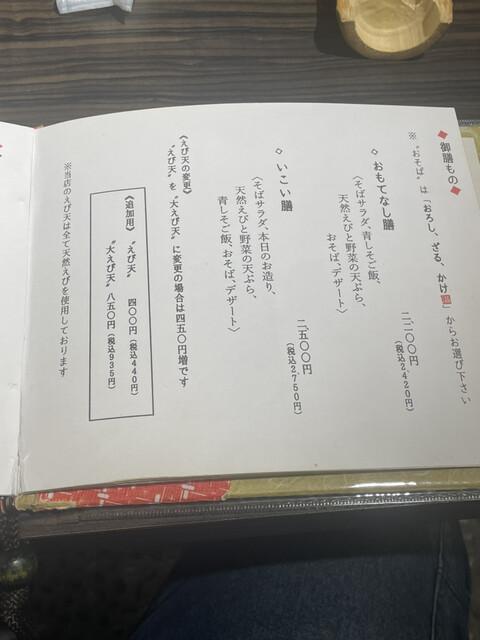 ◆御膳もの◆
※〝おそば〟は「おろし、ざる、かけ温」からお選び下さい
◇おもてなし膳
二、二〇〇円
(税込2,420円)
〈そばサラダ、青しそご飯、
天然えびと野菜の天ぷら、
おそば、デザート〉
◇いこい膳
二、五〇〇円
(税込2,750円)
〈そばサラダ、本日のお造り、
天然えびと野菜の天ぷら、
青しそご飯、おそば、デザート〉
《えび天の変更》
〝えび天〟を〝大えび天〟に変更の場合は四五〇円増です
《追加用》〝えび天〟 四〇〇円(税込440円)
〝大えび天〟 八五〇円(税込935円)
※当店のえび天は全て天然えびを使用しております